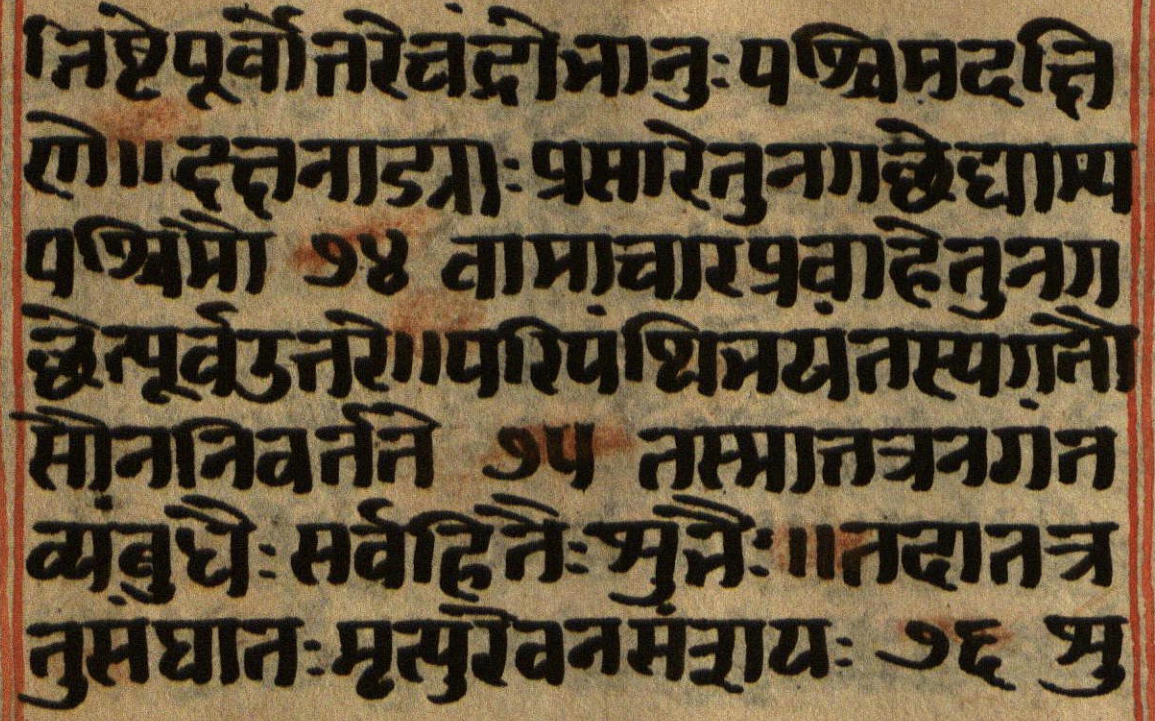 तिष्टेपूर्वोत्तरेचंद्रोभानुःपश्चिमदक्षि
णे॥दक्षनाड्याःप्रसारेतुनगछेद्याम्य
पश्चिमौ ७४ वामाचारप्रवाहेतुनग
छेत्पूर्वउत्तरे॥परिपंथिभयंतस्यगतौ
सौननिवर्तते ७५ तस्मात्तत्रनगंत
व्यंबुधैःसर्वहितैःशुभैः॥तदातत्र
तुसंघातःमृत्युरेवनसंशयः ७६ शु